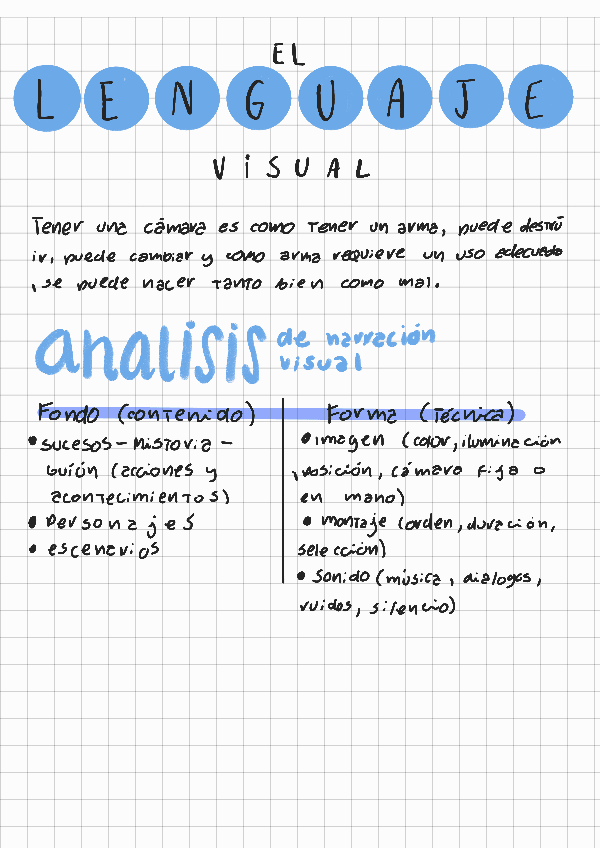 EL
LENGUAJE
ViSUAL
Tener una cámara es como tener un arma, puede destru
ir, puede cambiar y como arma requiere un uso adecuado
, se puede hacer tanto bien como mal.
analisis de narración
visual
Fondo (contenido)
• sucesos - historia -
guión (acciones y
acontecimientos)
• personajes
• escenarios
Forma (Técnica)
• imagen (color, iluminación
, posición, cámara fija o
en mano)
• montaje (orden, duración,
selección)
• Sonido (música, dialogos,
ruidos, silencio)